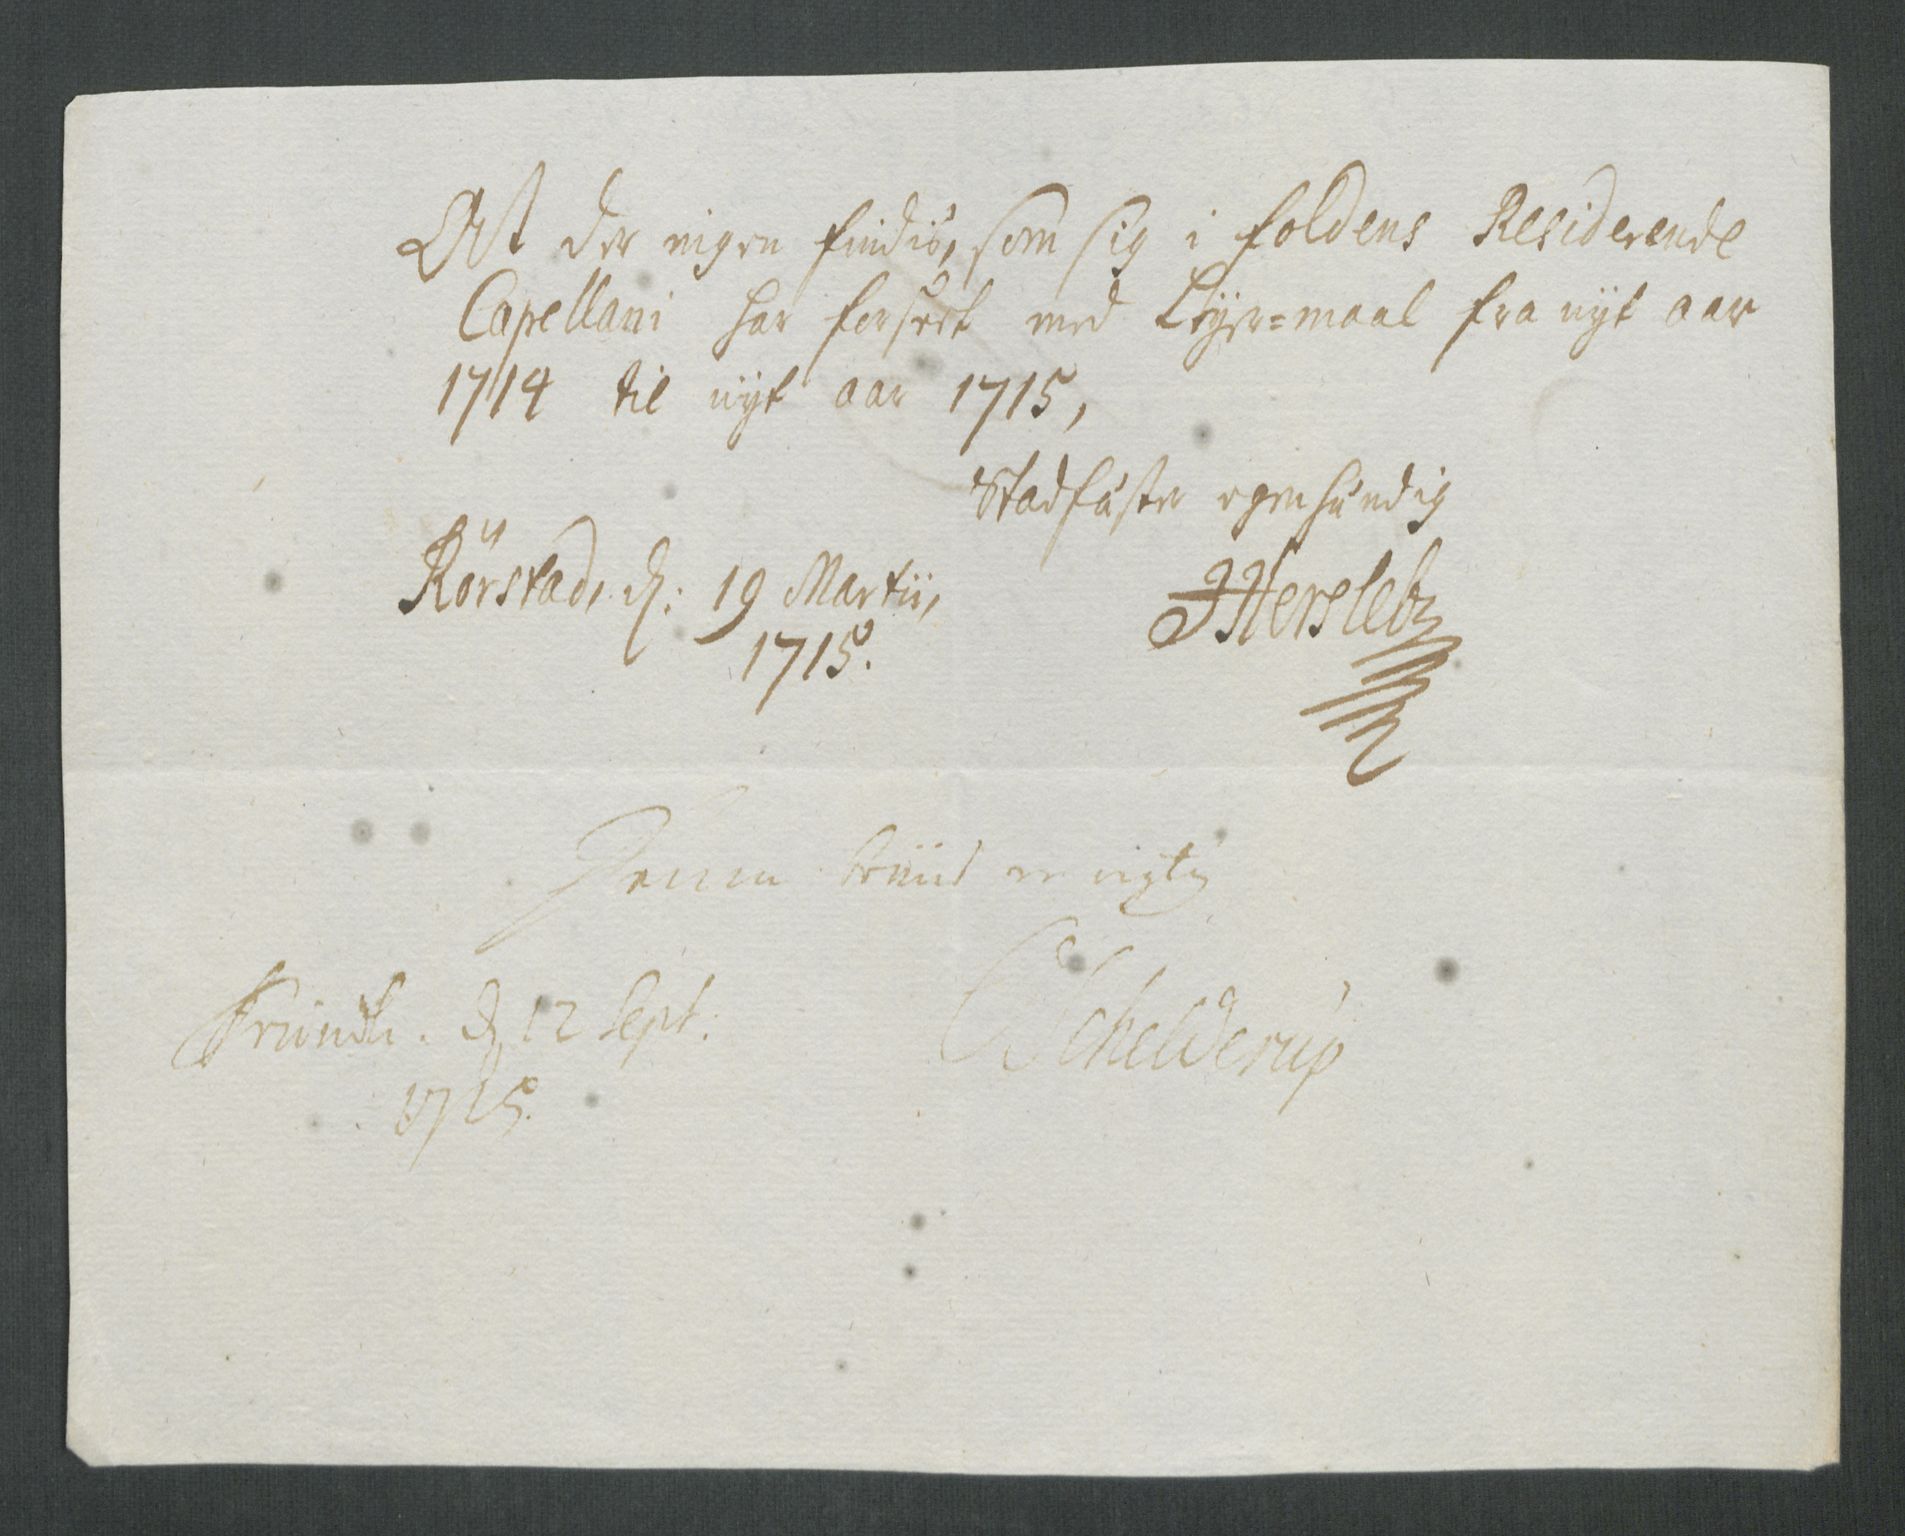 At der ingen findis, som sig i foldens Residerende
Capellani har forseet med Leyer=maal fra nyt aar
1714 til nyt aar 1715,
Stadfäster egenhændig
Rörstad, d: 19 Martii,
1715.
JHersleb
Denne er rigtig
Trundh. d 12 Sept:
1715.
Schelderup